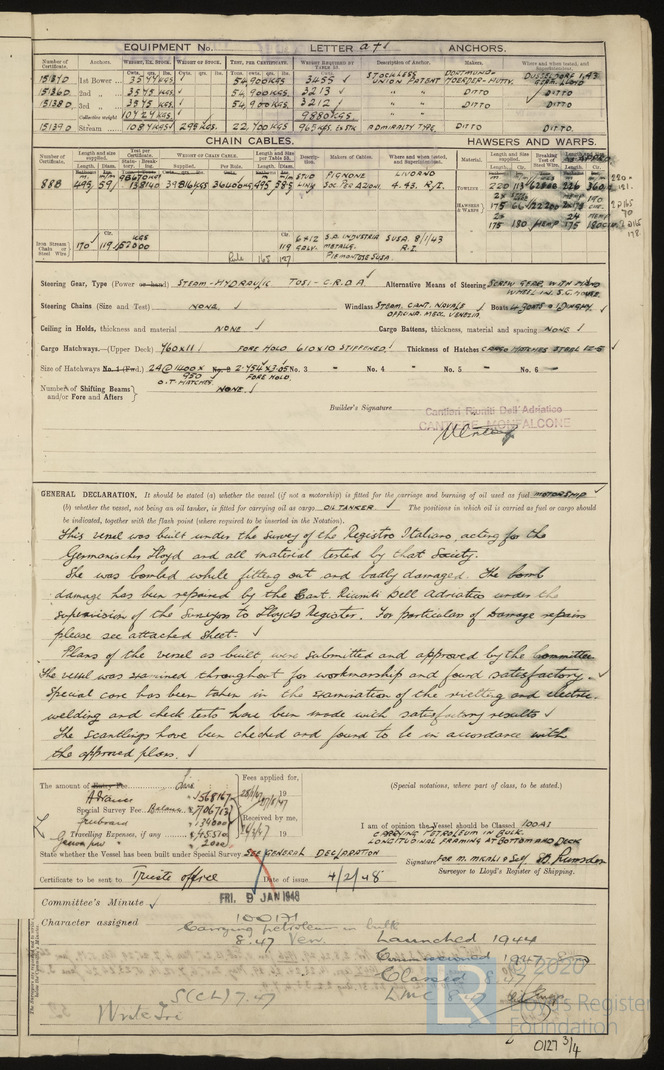 EQUIPMENT No. LETTER at ANCHORS.
Number of Certificate. Anchors. Weight, Ex. Stock. Weight of Stock. Test, per Certificate. Weight Required by Table 53. Description of Anchor. Makers. Where and when tested, and Superintendent.
15137D 1st Bower 3544 KGS. 54,900 KGS 3455 ✓ STOCKLESS UNION PATENT DORTMUND-HOERDER-HUTTV. DUSSELDORF 1.43 GERM. LLOYD
15136D 2nd " 3545 KGS. 54,900 KGS. 3213 ✓ " " DITTO DITTO
15138D 3rd " 54,900 KGS 3212 ✓ " " DITTO DITTO
Collective weight 10424 KGS. 9880 KGS.
15139D Stream 1084 KGS 298 KGS. 22,700 KGS ADMIRALTY TYPE DITTO DITTO.
CHAIN CABLES. HAWSERS AND WARPS.
88B 495 59 138140 36400 KGS 495 STUD LINK PIGNONE SOC. PER AZIONI LIVORNO 4.43. R.I.
Iron Stream Chain or Steel Wire 170 119 52000 KGS 119 6×12 GALV. S.A. INDUSTRIA METALLG. PIEMONTESE SUSA. SUSA. 8/1/43 R.I.
Steering Gear, Type (Power or hand) STEAM-HYDRAULIC TOSI - C.R.D.A. Alternative Means of Steering SCREW GEAR WITH HAND WHEEL IN S.G. HOUSE
Steering Chains (Size and Test) NONE. ✓ Windlass STEAM. CANT. NAVALE OFFICINA MECC. VENEZIA. Boats 4 BOATS & 1 DINGHY ✓
Ceiling in Holds, thickness and material NONE ✓ Cargo Battens, thickness, material and spacing NONE ✓
Cargo Hatchways.—(Upper Deck) 760×11 ✓ FORE HOLD 610×10 STIFFENED ✓ Thickness of Hatches CARGO HATCHES STEEL
Size of Hatchways No. 1 (Fwd.) 24 @ 1400 × 950 O.T. HATCHES No. 2 2.454×3.05 FORE HOLD. No. 3 " No. 4 " No. 5 " No. 6
Number of Shifting Beams and/or Fore and Afters NONE. ✓
Builder's Signature Cantieri Riuniti Dell'Adriatico
CANTIERE MONFALCONE
GENERAL DECLARATION. It should be stated (a) whether the vessel (if not a motorship) is fitted for the carriage and burning of oil used as fuel MOTORSHIP ✓
(b) whether the vessel, not being an oil tanker, is fitted for carrying oil as cargo OIL TANKER ✓ The positions in which oil is carried as fuel or cargo should
be indicated, together with the flash point (where required to be inserted in the Notation).
This vessel was built under the survey of the Registro Italiano, acting for the
Germanischer Lloyd and all material tested by that Society.
She was bombed while fitting out and badly damaged. The bomb
damage has been repaired by the Cant. Riuniti Dell Adriatico under the
supervision of the Surveyors to Lloyds Register. For particulars of Damage repairs
please see attached sheet. ✓
Plans of the vessel as built were submitted and approved by the Committee.
The vessel was examined throughout for workmanship and found satisfactory. ✓
Special care has been taken in the examination of the rivetting and electric
welding and check tests have been made with satisfactory results ✓
The scantlings have been checked and found to be in accordance with
the approved plans. ✓
The amount of Entry Fee Lire Fees applied for, (Special notations, where part of class, to be stated.)
Advance 1568167
Special Survey Fee. Balance 706713 Received by me,
Freeboard 134000 I am of opinion the Vessel should be Classed 100A1
Travelling Expenses, if any 45570 CARRYING PETROLEUM IN BULK.
2000 LONGITUDINAL FRAMING AT BOTTOM AND DECK
State whether the Vessel has been built under Special Survey SEE GENERAL DECLARATION Signature FOR M. MKALI & Self
Surveyor to Lloyd's Register of Shipping.
Certificate to be sent to Trieste office Date of issue 4/2/48
Committee's Minute ✓ FRI. 9 JAN 1948
Character assigned 100A1
Carrying petroleum in bulk
8.47 Ven. Launched 1944
Commissioned 1947
Classed 8.47
S(CL) 7.47 LMC 8.47
Write Tri
LR © 2020
Lloyd's Register
Foundation
0127 3/4